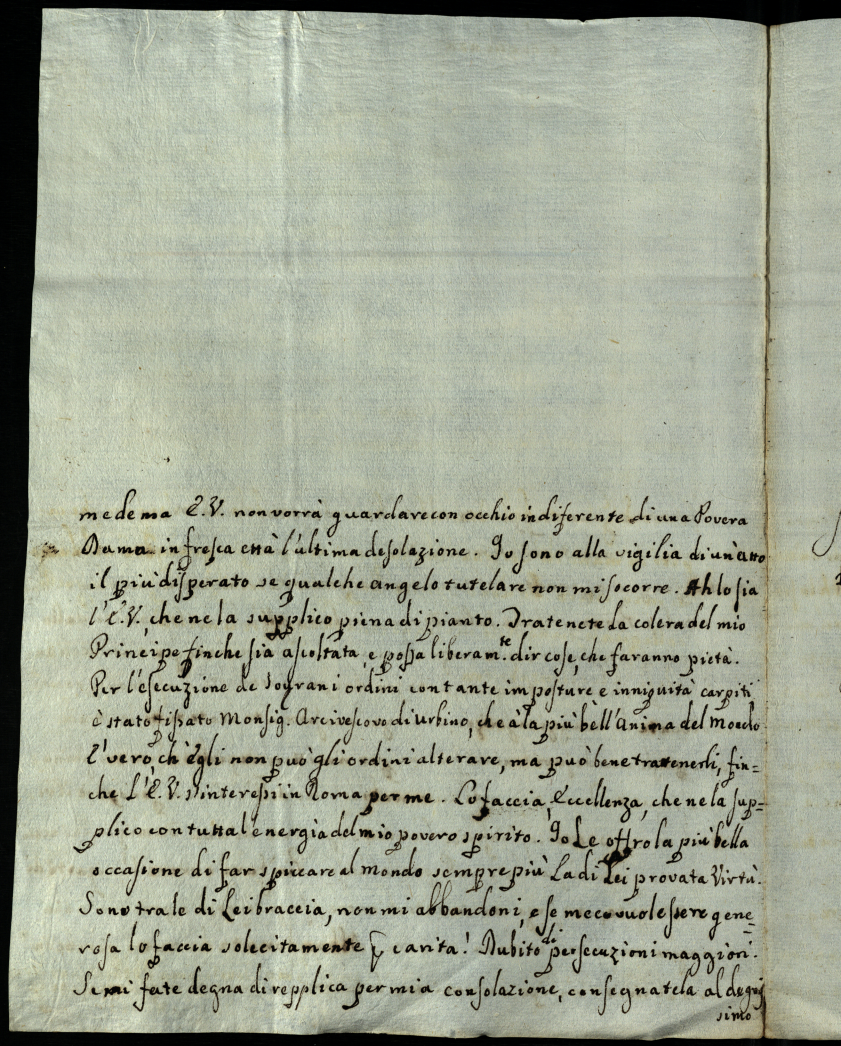 medema E.V. non vorrà guardare con occhio indiferente di una Povera
Dama in fresca ettà l'ultima desolazione. Io sono alla vigilia di un'atto
il più disperato se qualche angelo tutelare non mi socorre. Ah lo sia
l'E.V., che ne la supplico piena di pianto. Tratenete la colera del mio
Principe finche sia ascoltata, e possa liberam.te dir cose, che faranno pietà.
Per l'esecuzione de Sovrani ordini con tante imposture e inniquità carpiti
è stato fissato Monsig. Arcivescovo di Urbino, che à la più bell'Anima del Mondo
E' vero, ch'Egli non può gli ordini alterare, ma può bene trattenerli, fin=
che L'E.V. s'interessi in Roma per me. Lo faccia, Eccellenza, che ne la sup=
plico con tutta l'energia del mio povero spirito. Io Le offro la più bella
occasione di far spiccare al mondo sempre più La di Lei provata Virtù.
Sono tra le di Lei braccia, non mi abbandoni, e se meco vuol essere gene=
rosa lo faccia solecitamente p carita! Dubito di persecuzioni maggiori.
Se mi fate degna di repplica per mia consolazione, consegnatela al degnis
simo